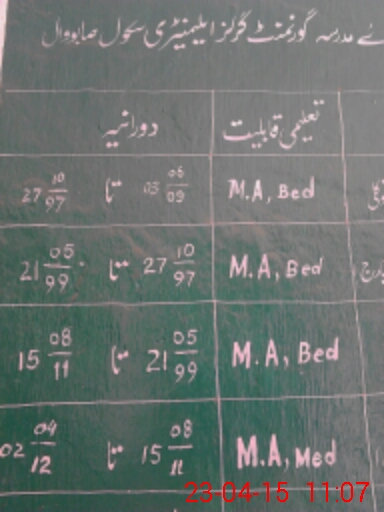 مدرسہ گورنمنٹ گرلز ایلیمنٹری سکول صابووال
تعلیمی قابلیت دورانیہ
M.A, Bed 06/09 تا 27 10/97
M.A, Bed 27 10/97 تا 21 05/99
M.A, Bed 21 05/99 تا 15 08/11
M.A, Med 15 08/11 تا 02 04/12
23-04-15 11:07